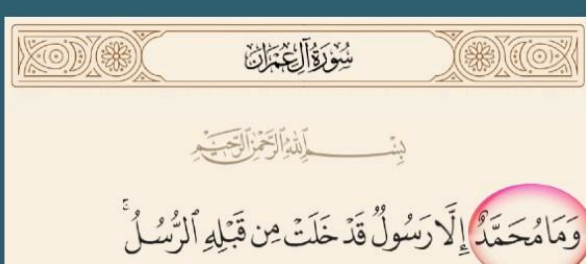 سُورَةُ آلِ عِمْرَان
بِسْمِ ٱللَّهِ ٱلرَّحْمَٰنِ ٱلرَّحِيمِ
وَمَا مُحَمَّدٌ إِلَّا رَسُولٌ قَدْ خَلَتْ مِن قَبْلِهِ ٱلرُّسُلُ ۚ